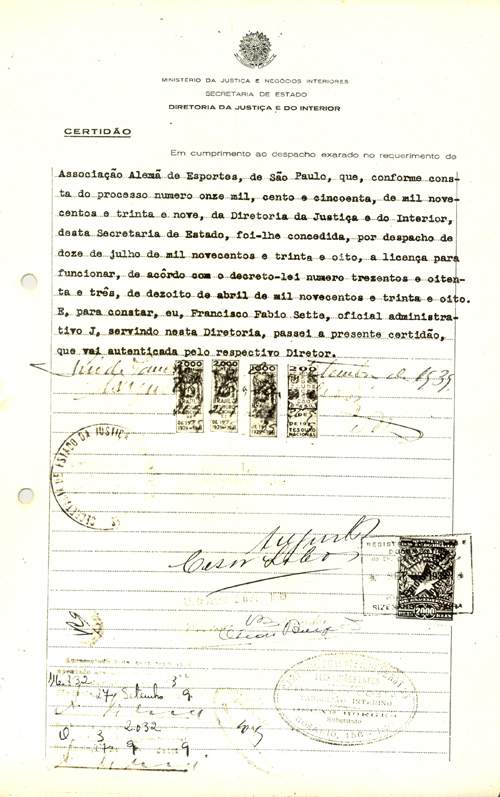 MINISTÉRIO DA JUSTIÇA E NEGÓCIOS INTERIORES
SECRETARIA DE ESTADO
DIRETORIA DA JUSTIÇA E DO INTERIOR
CERTIDÃO
Em cumprimento ao despacho exarado no requerimento de
Associação Alemã de Esportes, de São Paulo, que, conforme cons-
ta do processo numero onze mil, cento e cincoenta, de mil nove-
centos e trinta e nove, da Diretoria da Justiça e do Interior,
desta Secretaria de Estado, foi-lhe concedida, por despacho de
doze de julho de mil novecentos e trinta e oito, a licença para
funcionar, de acôrdo com o decreto-lei numero trezentos e oiten-
ta e três, de dezoito de abril de mil novecentos e trinta e oito.
E, para constar, eu, Francisco Fabio Sette, oficial administra-
tivo J, servindo nesta Diretoria, passei a presente certidão,
que vai autenticada pelo respectivo Diretor.
de 1939
2000 2000 200
TESOURO
NACIONAL
SECRETARIA DE ESTADO DA JUSTIÇA
REGIST
2000
46.332
27 Setembro 9
3 2.032
27 9 9
INTERINO
Substituto